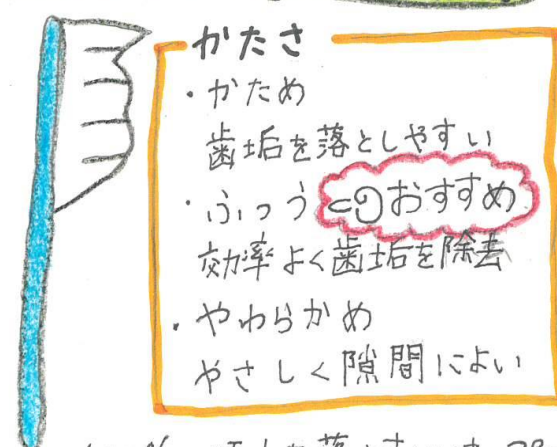 かたさ
・かため
歯垢を落としやすい
・ふつう おすすめ
効率よく歯垢を除去
・やわらかめ
やさしく隙間によい